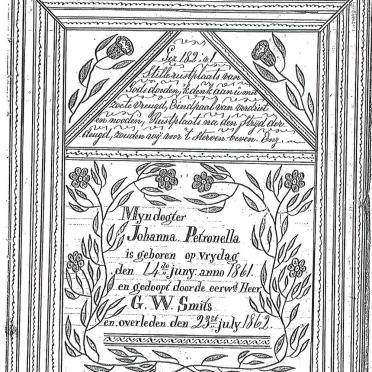 Gez 182:1
Stille rustplaats van
Gods dooden, 'k denk aan u met
zoete vreugd, Eindpaal van verdriet
en nooden, Rustplaats na den strijd der
deugd, zouden wij voor 't sterven beven. Enz.
Myn dogter
Johanna Petronella
is geboren op vrydag
den 14de juny anno 1861.
en gedoopt door de eerwe Heer
G. W. Smits
en, overleden den 23ste july 1862.